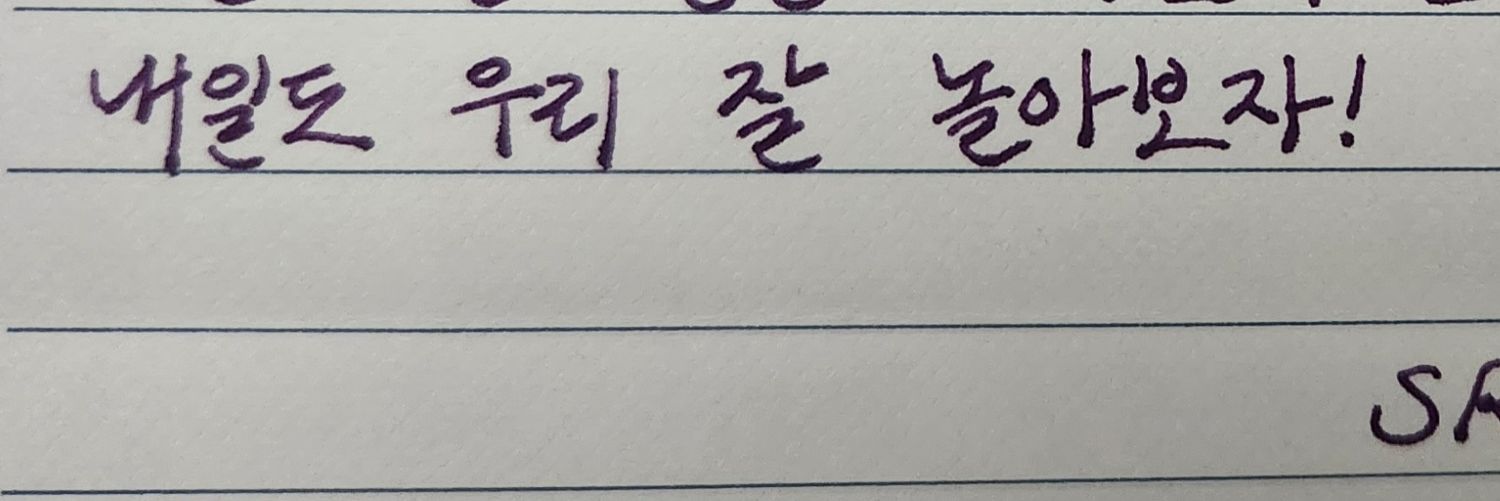 내일도 우리 잘 놀아보자!